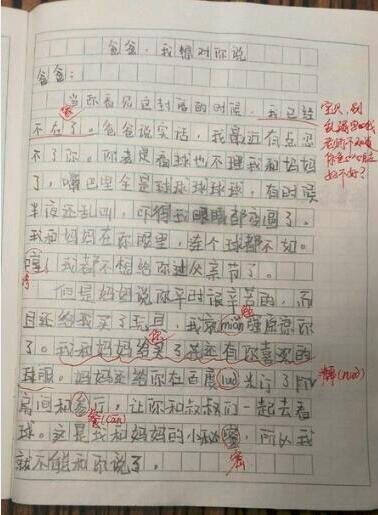 爸爸,我想对你说
爸爸:
当你看见这封信的时候,我已经
不在了。爸爸说实话,我最近有点忍
不了你。你老是看球也不理我和妈妈
了,嘴巴里全是球球球球球,有时候
半夜还乱叫,吓得我眼睛都变圆了。
我和妈妈在你眼里,连个球都不如。
哼!我都不想给你过父亲节了。
但是妈妈说你平时很辛苦的,而
且还给我买了玩具,我就mian强原京你
了。我和妈妈给买了花还有你喜欢的
球服。妈妈还给你在百度luo米订了
房间和 行,让你和叔叔们一起去看
球。这是我和妈妈的小秘蜜,所以我
就不能和你说了。
你
勉
餐(can)
密
糯(nuo)
宝贝,别
好不好?